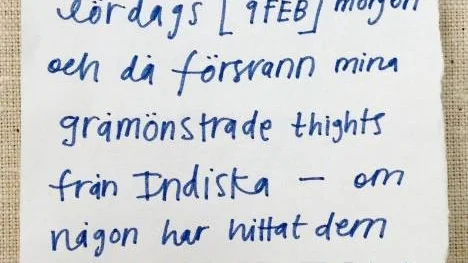 lördags [9FEB] morgon
och då försvann mina
gråmönstrade thights
från Indiska — om
någon har hittat dem